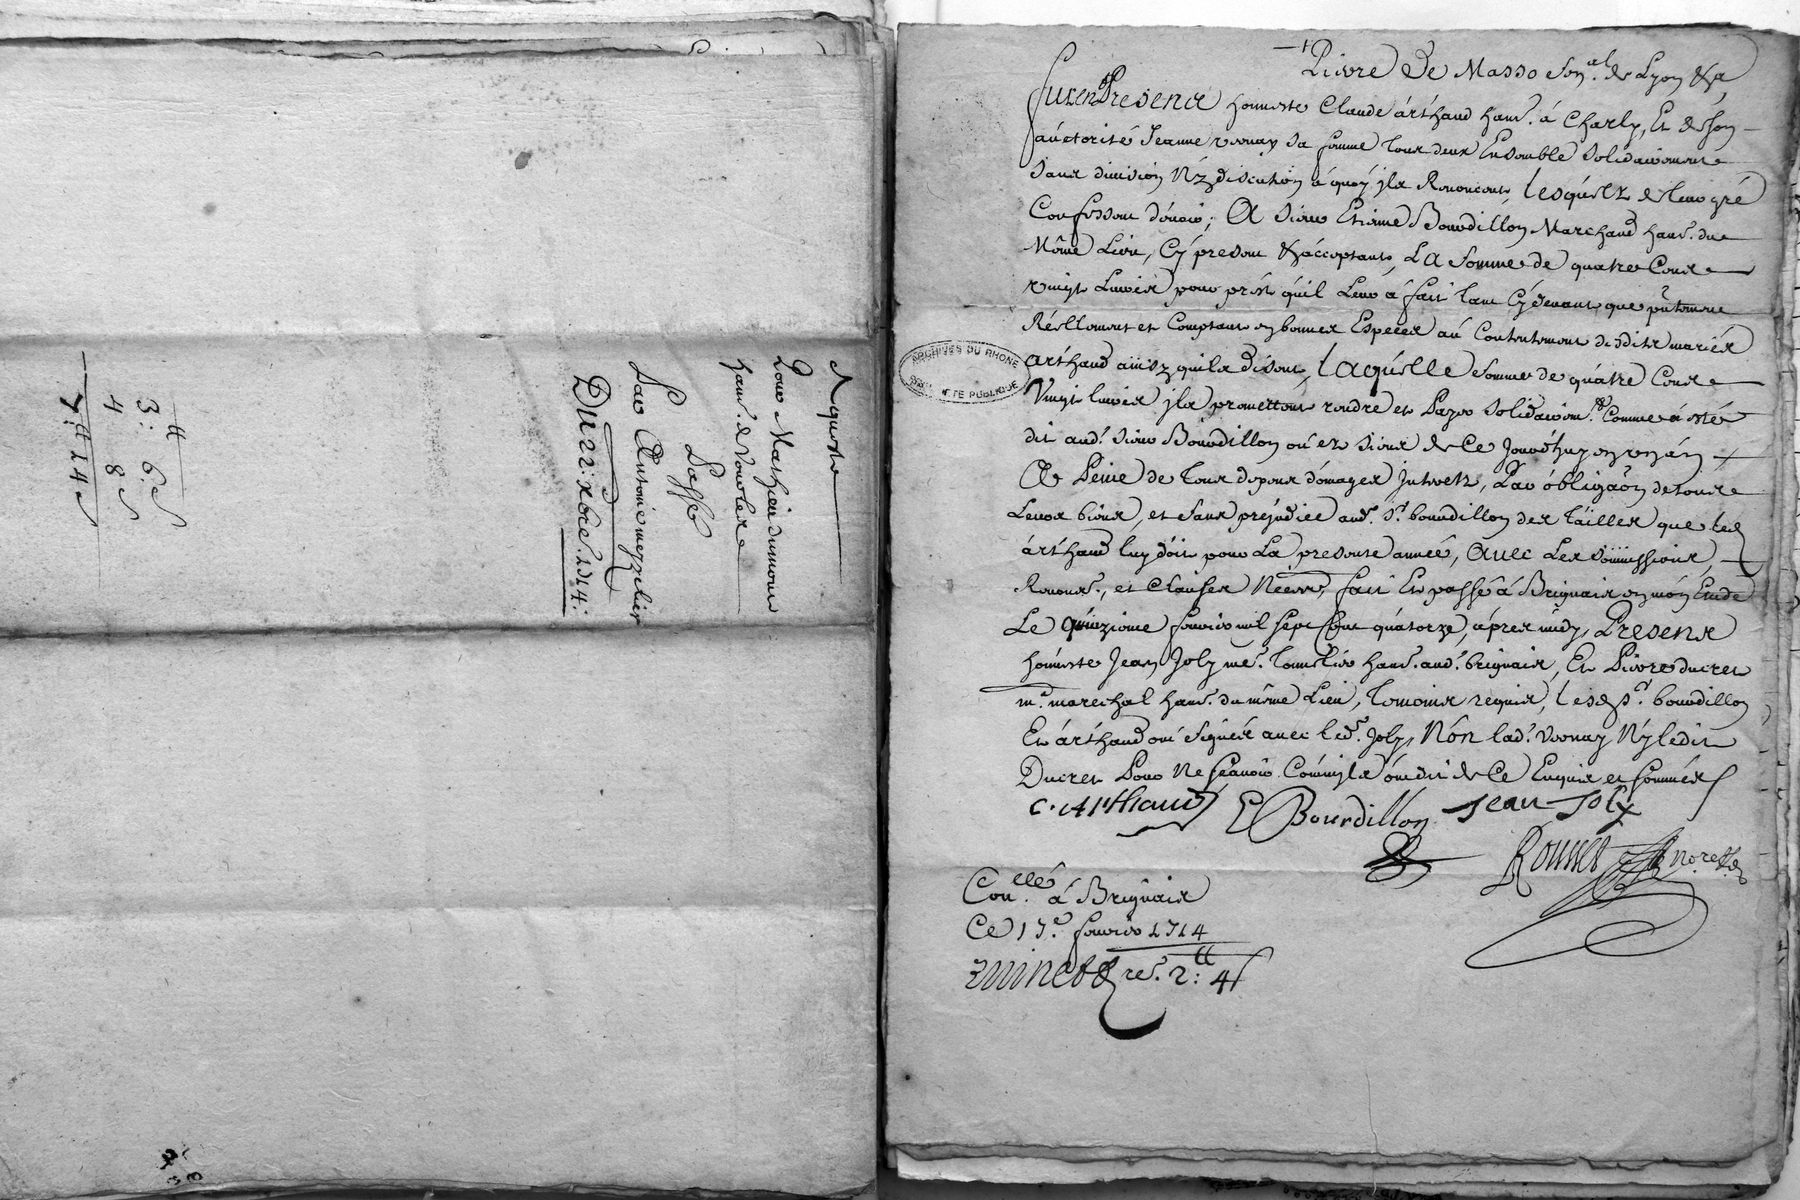 Requeste
Pour Mathieu dumont
han.t de Vourles
Passé
Par Antoine mezelier
Du 22: xbre. 1714:
3: 6 s
4 8 s
7: 14 s
Pierre De Masso Sen.al de Lyon &a
Furen Presence honneste Claude árthaud han.t á Charly, Et de son
áuctorité Jeanne vernay sa femme tous deux Ensemble solidairement
sans division Ny discution á quoy jls Renoncent, lesquélz de leur gré
Confessent dévoir, A sieur Etienne Bourdillon Marchand han.t du
Même Lieu, Cy present & ácceptant, LA somme de quatre Cent
vingt Livres pour prést qu'il Leur á fait tant Cy devant que pñtement
Réellement et Comptant en bonnes Especes aú Contentement desdits mariés
arthaud ainsy quils disent, laquélle somme de quátre Cent
Vingt livres jls promettent rendre et Payer solidairem.t Comme á esté
dit aud.t sieur Bourdillon ou és siens de Ce Jourd'huy en un án
A Peine de tous depens dómages jnterets, Par óbligaõn de tous
Leurs biens, et sans préjudice aud.t s.r bourdillon des tailles que led
árthaud luy dóit pour La presente année, avec Les soumissions,
Renonc.s, et Clauses Néces, fait Et passé á Brignais en món Etude
Le quinzieme fevrier mil sept Cent quátorze, ápres midy, Presens
hónneste Jean Joly me. tonnelier han.t aud.t brignais, Et Pierre ducret
m.e marechal han.t du même Lieu, temoins requis, lesd s.r bourdillon
Et árthaud ont signés avec led.t Joly, Nón lad.t vernay Ny ledit
Ducret Pour Ne scavoir Comm'jls ónt dit de Ce Enquis et sommés
C. Arthaud E Bourdillon Jean Joly
no.re
Con.ellé á Brignais
Ce 17.e fevrier 1714
re. 2: 4 s
ARCHIVES DU RHONE
PROPRIETE PUBLIQUE